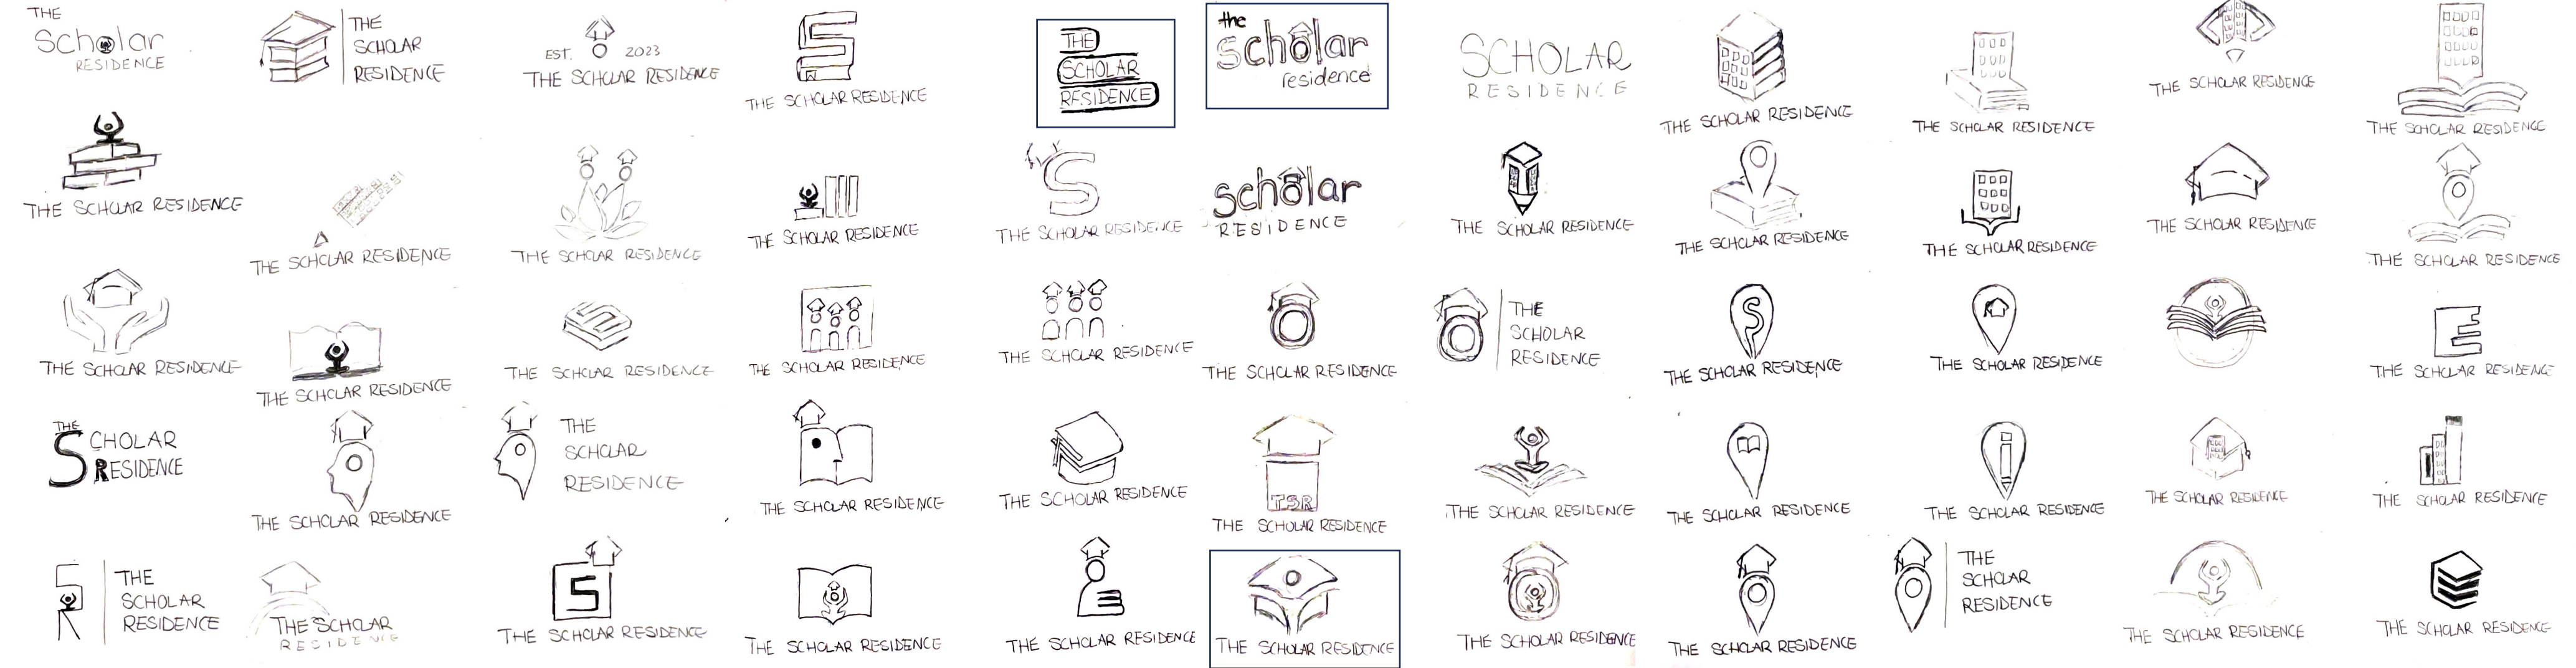 THE
Scholar
RESIDENCE
THE
SCHOLAR
RESIDENCE
EST. 2023
THE SCHOLAR RESIDENCE
S
THE SCHOLAR RESIDENCE
THE
SCHOLAR
RESIDENCE
the
scholar
residence
SCHOLAR
RESIDENCE
THE SCHOLAR RESIDENCE
THE SCHOLAR RESIDENCE
THE SCHOLAR RESIDENCE
THE SCHOLAR RESIDENCE
THE SCHOLAR RESIDENCE
THE SCHOLAR RESIDENCE
THE SCHOLAR RESIDENCE
THE SCHOLAR RESIDENCE
S
THE SCHOLAR RESIDENCE
scholar
RESIDENCE
THE SCHOLAR RESIDENCE
THE SCHOLAR RESIDENCE
THE SCHOLAR RESIDENCE
THE SCHOLAR RESIDENCE
THE SCHOLAR RESIDENCE
THE SCHOLAR RESIDENCE
THE SCHOLAR RESIDENCE
S
THE SCHOLAR RESIDENCE
THE SCHOLAR RESIDENCE
THE SCHOLAR RESIDENCE
THE SCHOLAR RESIDENCE
THE
SCHOLAR
RESIDENCE
S
THE SCHOLAR RESIDENCE
THE SCHOLAR RESIDENCE
THE SCHOLAR RESIDENCE
THE
SCHOLAR
RESIDENCE
THE SCHOLAR RESIDENCE
THE
SCHOLAR
RESIDENCE
THE SCHOLAR RESIDENCE
THE SCHOLAR RESIDENCE
TSR
THE SCHOLAR RESIDENCE
THE SCHOLAR RESIDENCE
THE SCHOLAR RESIDENCE
THE SCHOLAR RESIDENCE
THE SCHOLAR RESIDENCE
THE SCHOLAR RESIDENCE
S
R
THE
SCHOLAR
RESIDENCE
THE SCHOLAR
RESIDENCE
S
THE SCHOLAR RESIDENCE
THE SCHOLAR RESIDENCE
THE SCHOLAR RESIDENCE
THE SCHOLAR RESIDENCE
THE SCHOLAR RESIDENCE
THE SCHOLAR RESIDENCE
THE
SCHOLAR
RESIDENCE
THE SCHOLAR RESIDENCE
THE SCHOLAR RESIDENCE